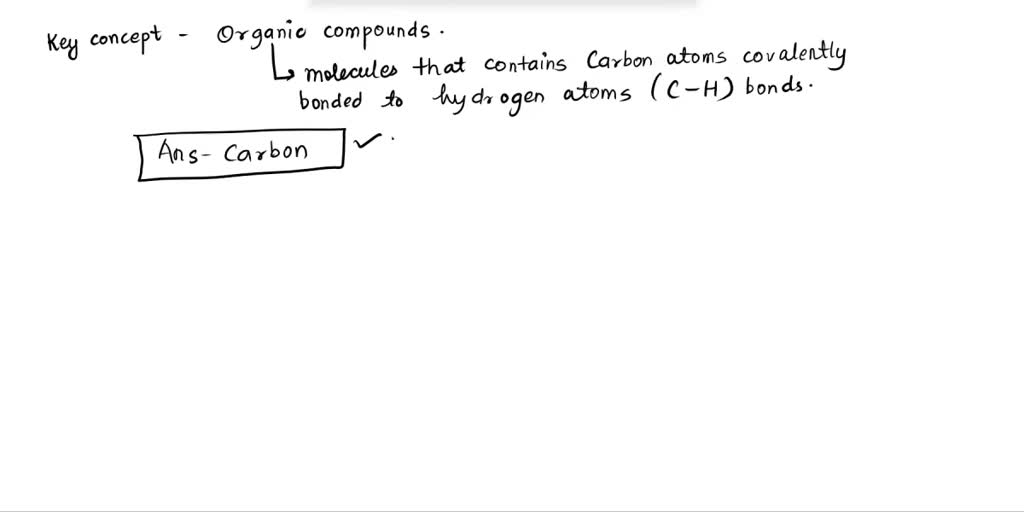 Key concept - Organic compounds.
↳ molecules that contains Carbon atoms covalently
bonded to hydrogen atoms (C-H) bonds.
Ans- Carbon ✓.